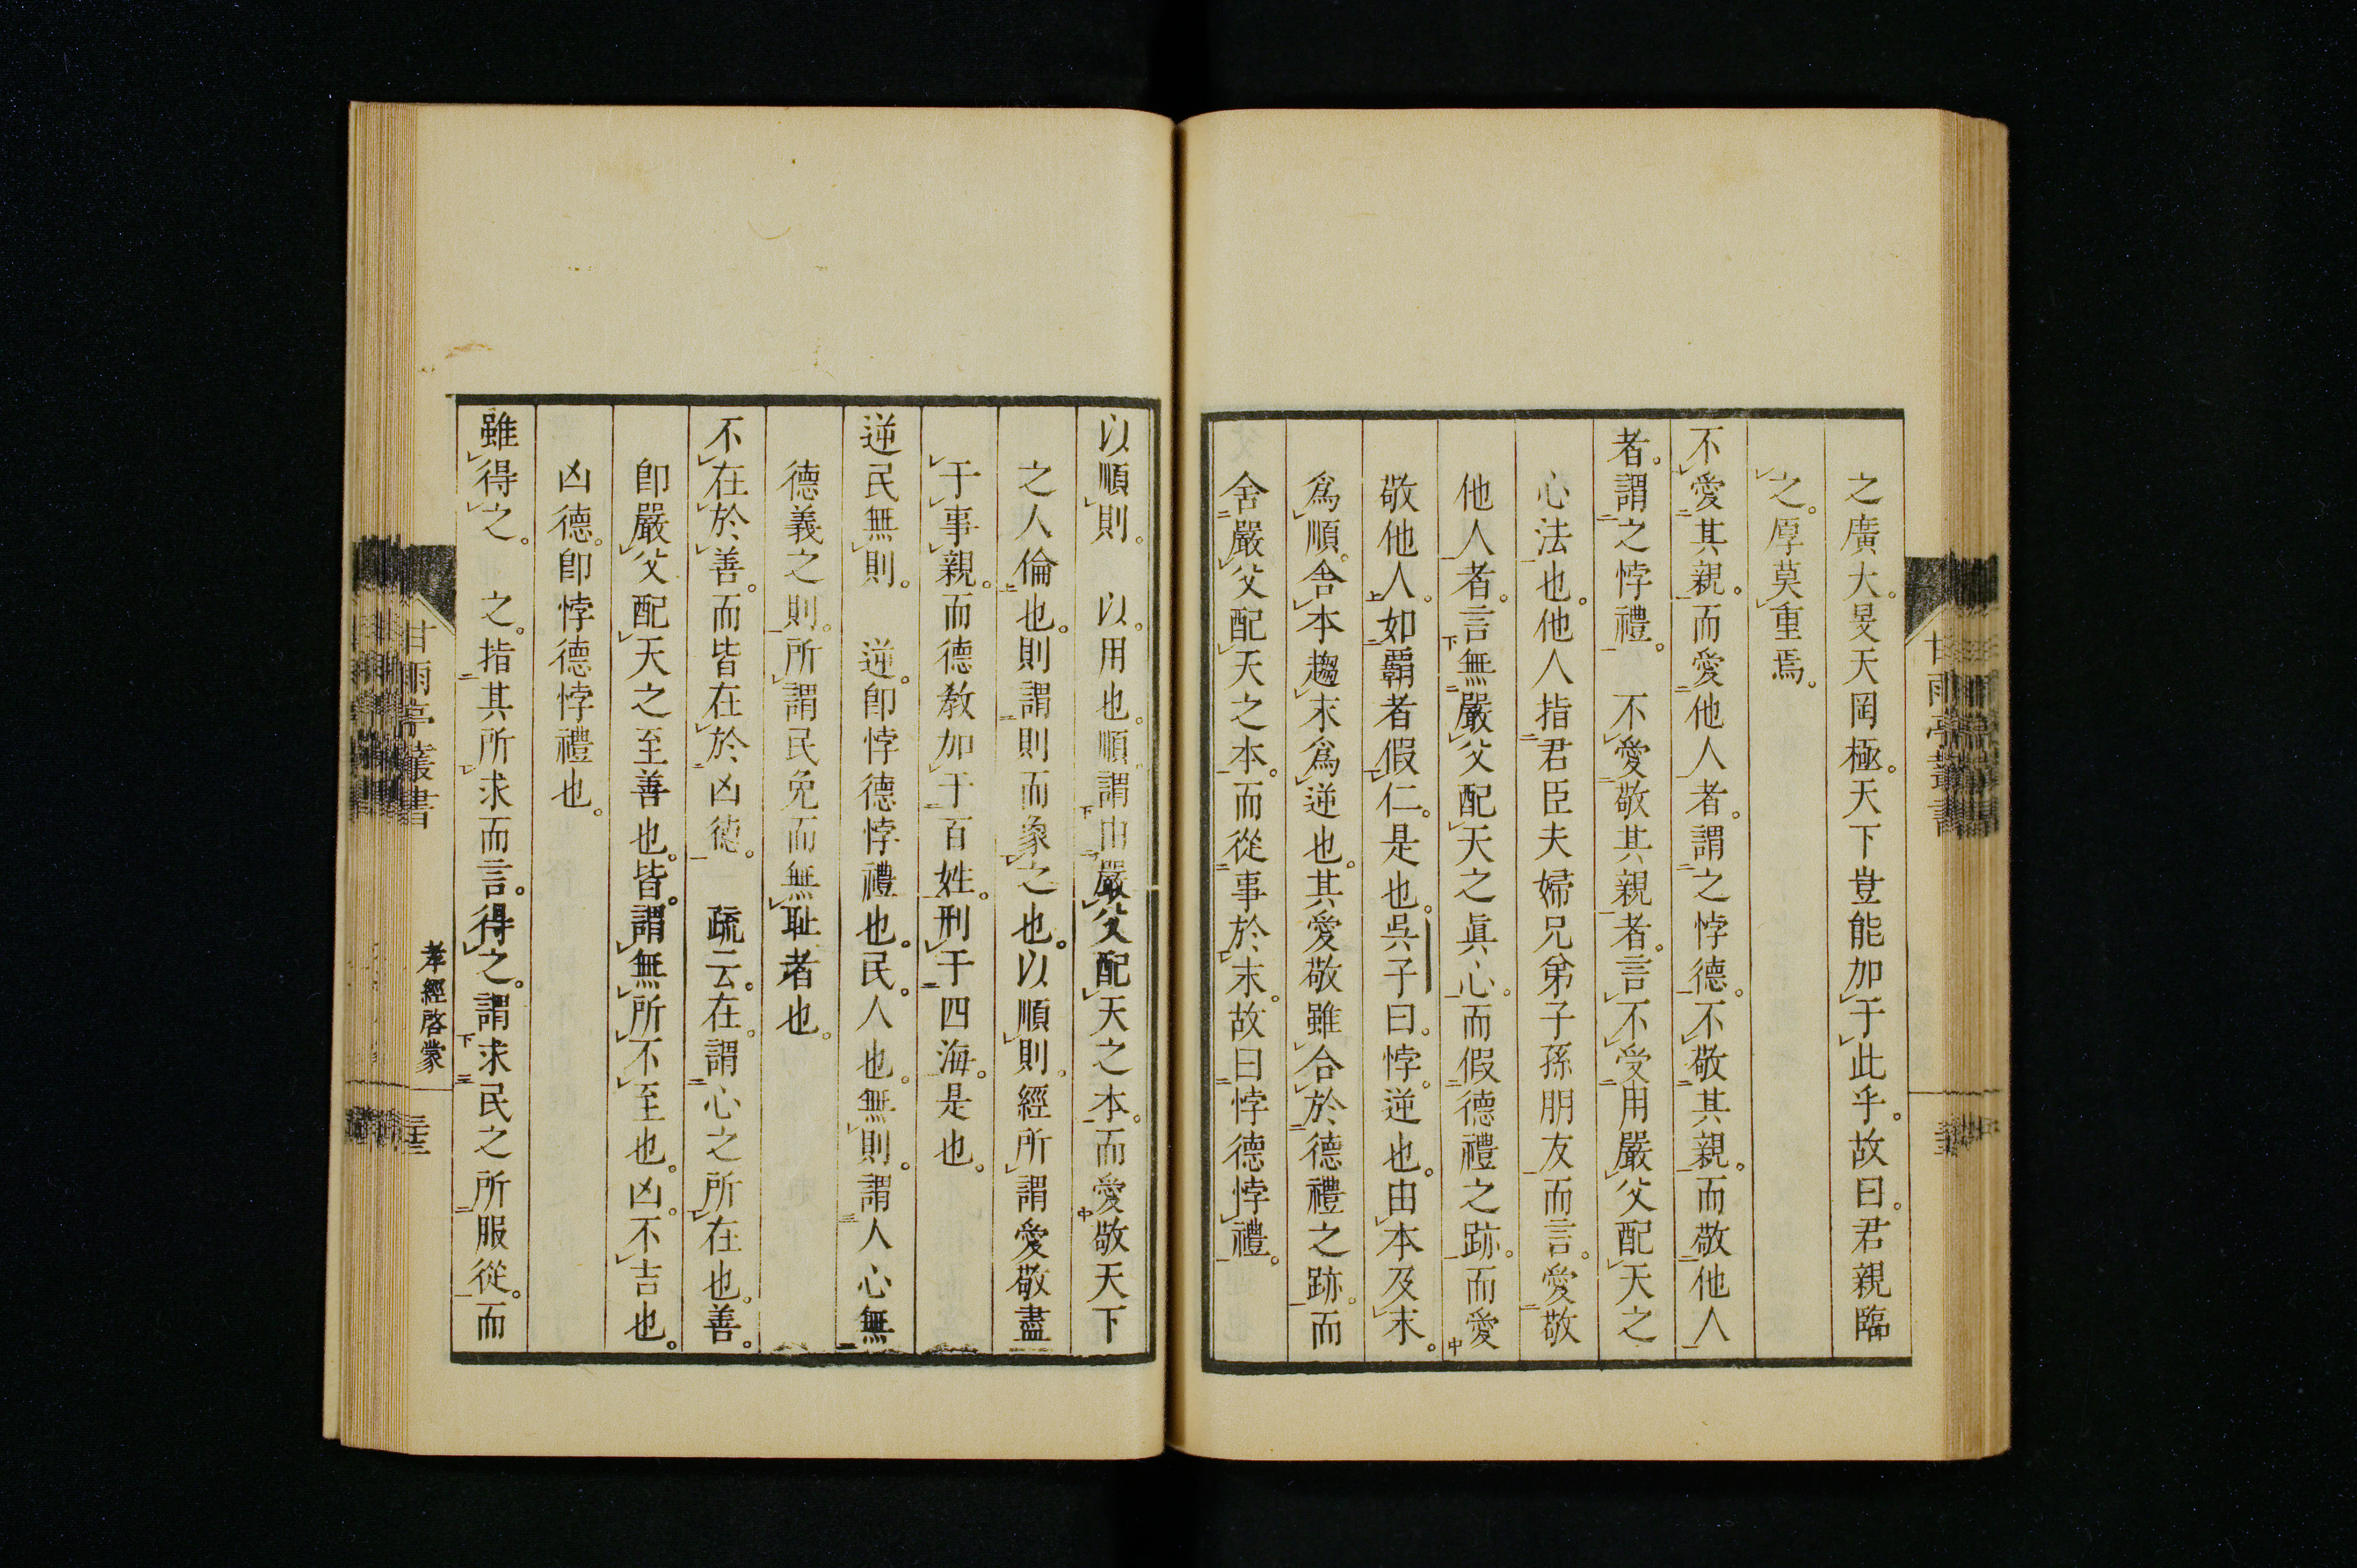 之廣大。旻天罔極。天下豈能加于此乎。故曰。君親臨
之。厚莫重焉。
不愛其親。而愛他人者。謂之悖德。不敬其親。而敬他人
者。謂之悖禮。 不愛敬其親者。言不受用嚴父配天之
心法也。他人指君臣夫婦兄弟子孫朋友而言。愛敬
他人者。言無嚴父配天之眞心。而假德禮之跡。而愛
敬他人。如覇者假仁。是也。吳子曰。悖。逆也。由本及末。
爲順。舎本趨末爲逆也。其愛敬雖合於德禮之跡。而
舍嚴父配天之本。而從事於末。故曰悖德悖禮。
以順則。 以。用也。順謂由嚴父配天之本。而愛敬天下
之人倫也。則謂則而象之也。以順則。經所謂愛敬盡
于事親。而德敎加于百姓。刑于四海。是也。
逆民無則。 逆。卽悖德悖禮也。民。人也。無則。謂人心無
德義之則。所謂民免而無耻者也。
不在於善。而皆在於凶德。 疏云。在。謂心之所在也。善。
卽嚴父配天之至善也。皆。謂無所不至也。凶。不吉也。
凶德。卽悖德悖禮也。
雖得之。 之。指其所求而言。得之。謂求民之所服從。而
甘雨亭叢書
孝經啓蒙
甘雨亭叢書